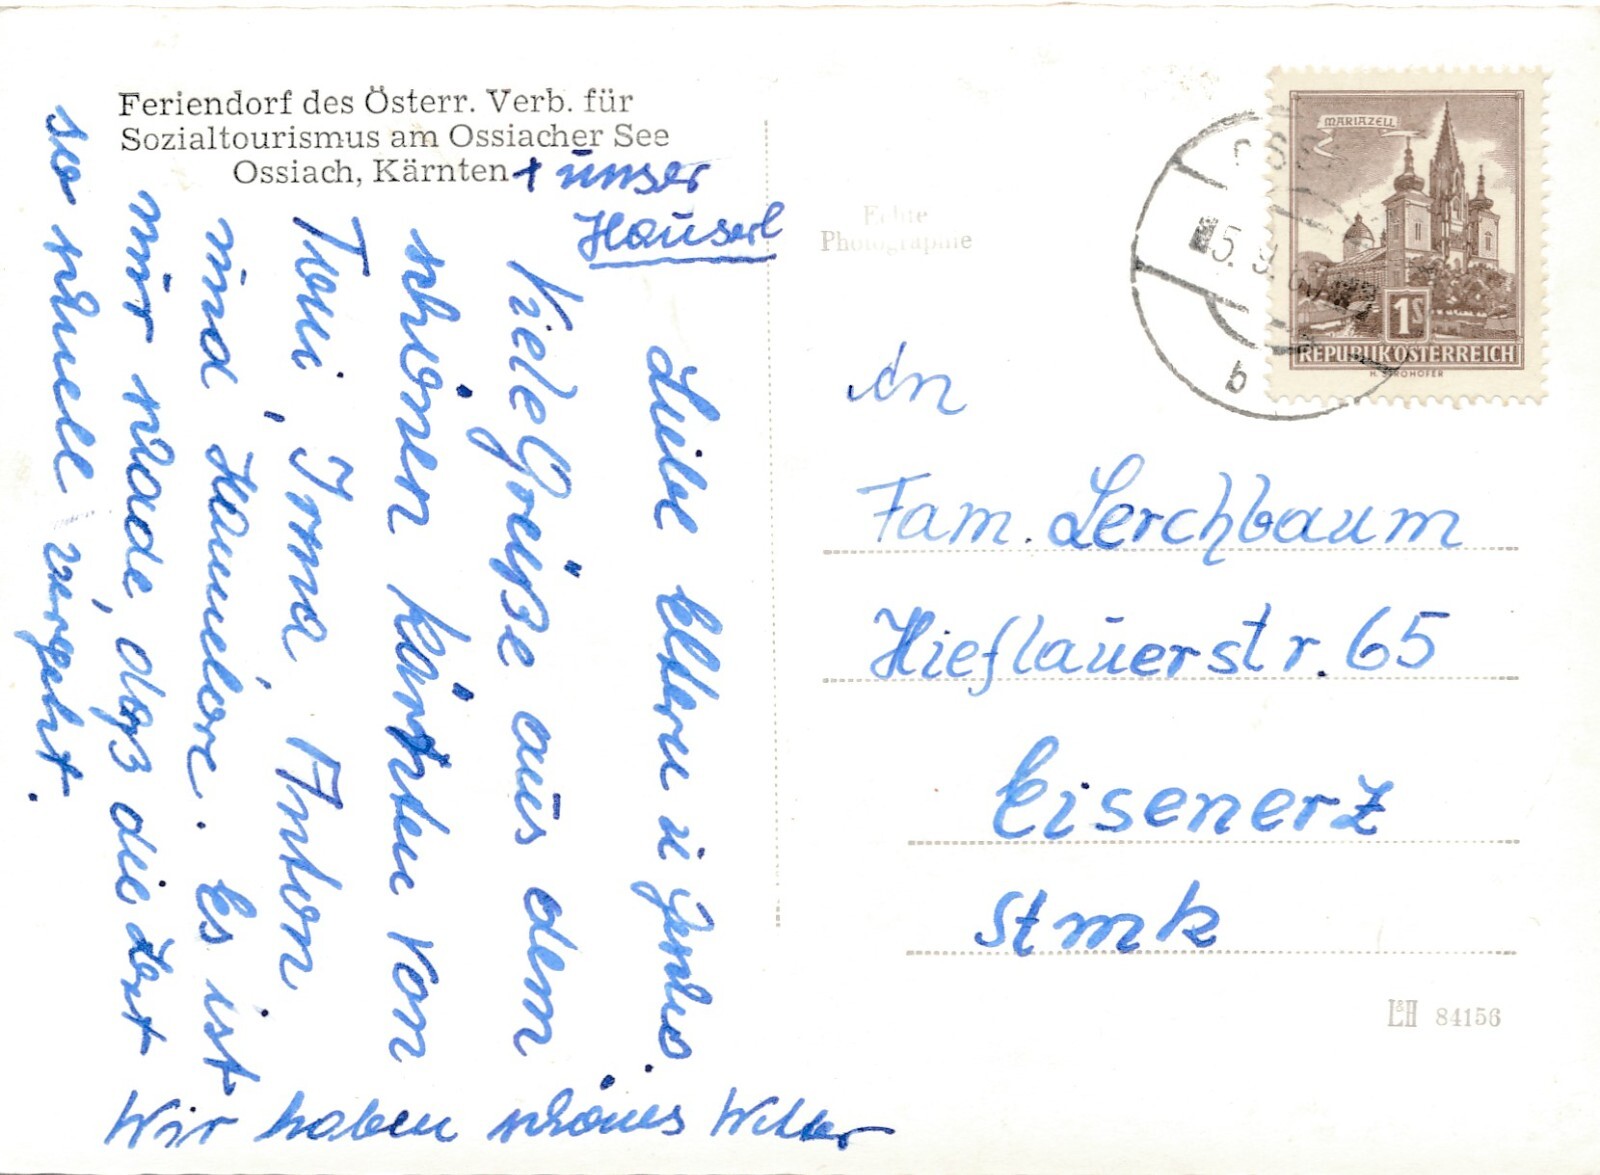 Feriendorf des Österr. Verb. für
Sozialtourismus am Ossiacher See
Ossiach, Kärnten + unser
Häuserl
Liebe Eltern u.
Viele Grüße aus dem
schönen Kärnten von
Toni, Irma, Anton
und Hannelore. Es ist
nur schade, daß die Zeit
so schnell vergeht.
Wir haben schönes Wetter
Echte
Photographie
MARIAZELL
1S
REPUBLIK ÖSTERREICH
H. STROHOFER
5. 9.
b
An
Fam. Lerchbaum
Hieflauerstr. 65
Eisenerz
Stmk
L&H 84156